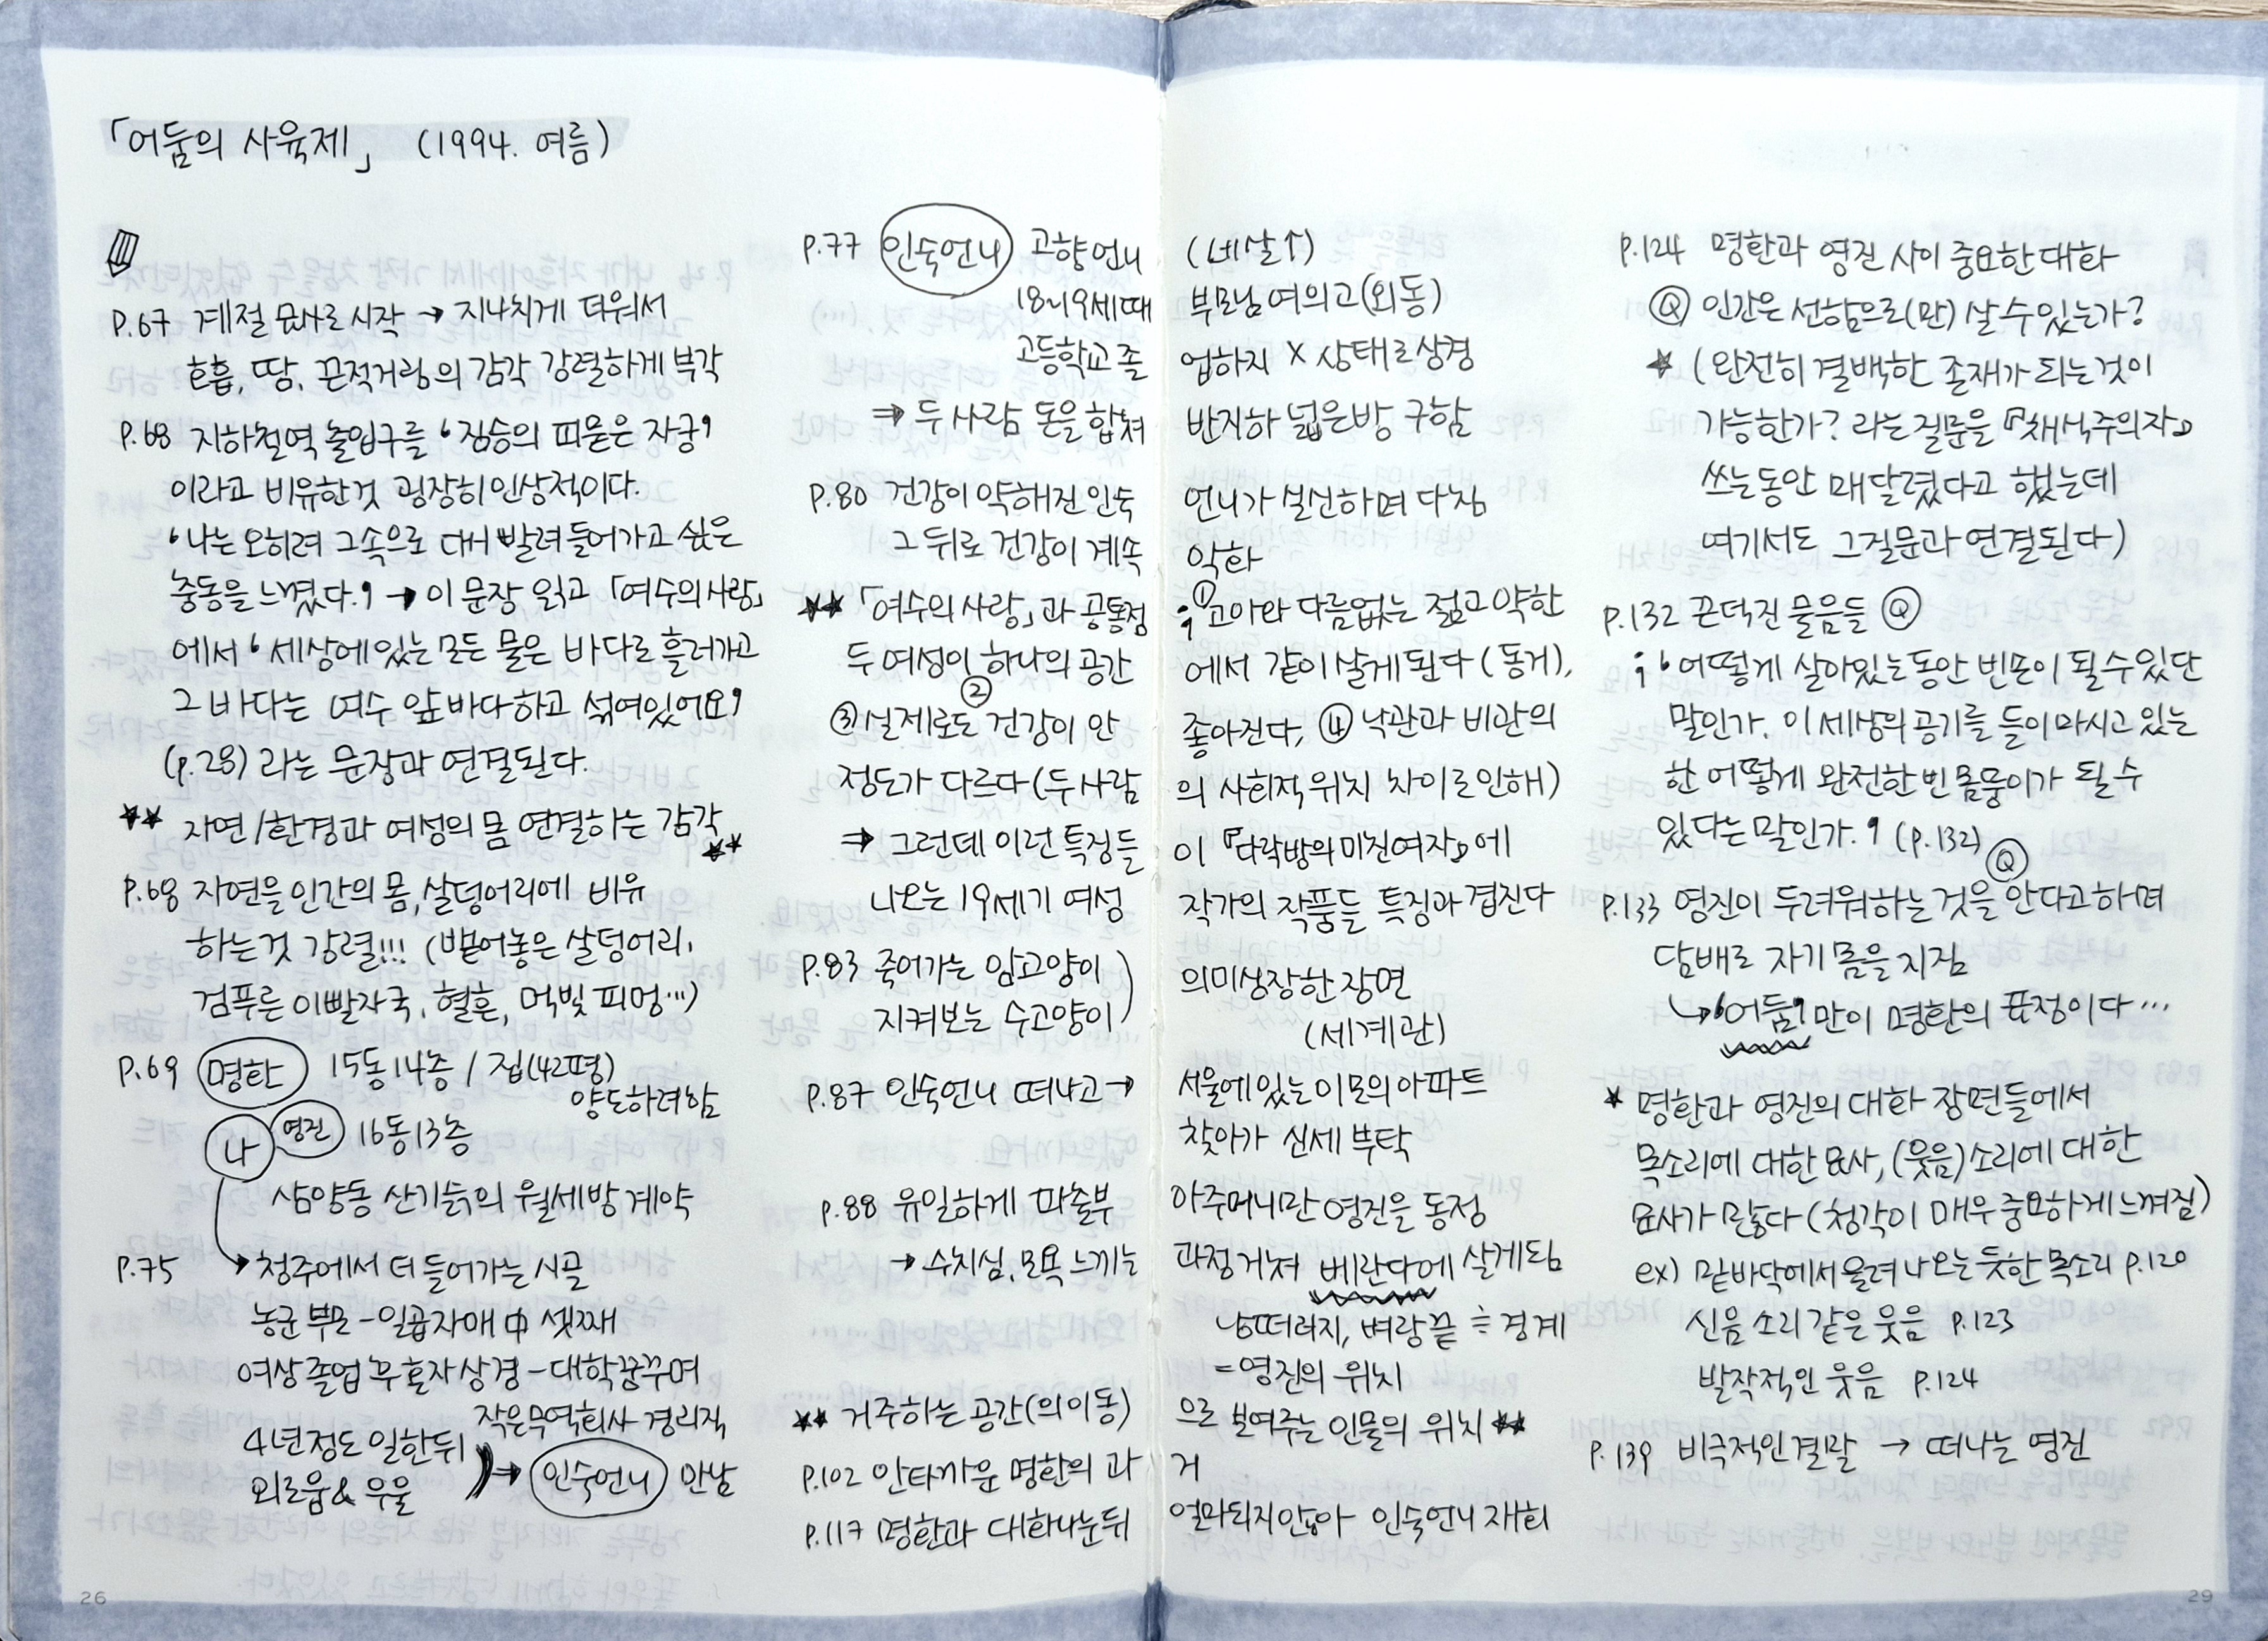 「어둠의 사육제」 (1994. 여름)
P.67 계절 묘사로 시작 → 지나치게 더워서
호흡, 땀, 끈적거림의 감각 강렬하게 부각
P.68 지하철역 출입구를 '짐승의 피묻은 자궁'
이라고 비유한것 굉장히 인상적이다.
'나는 오히려 그속으로 더 빨려들어가고 싶은
충동을 느꼈다.' → 이 문장 읽고 「여수의 사랑」
에서 '세상에 있는 모든 물은 바다로 흘러가고
그 바다는 여수 앞바다하고 섞여있어요'
(p.28) 라는 문장과 연결된다.
★★ 자연/환경과 여성의 몸 연결하는 감각 ★★
P.68 자연을 인간의 몸, 살덩어리에 비유
하는것 강렬!!! (뱉어놓은 살덩어리,
검푸른 이빨자국, 혈흔, 먹빛 피멍…)
P.69 명환 15동 14층 / 집(42평)
양도하려함
나 영진 16동 13층
삼양동 산기슭의 월세방 계약
P.75 → 청주에서 더 들어가는 시골
농군 부모 - 일곱자매 中 셋째
여상 졸업 후 혼자 상경 - 대학꿈꾸며
작은무역회사 경리직
4년정도 일한뒤
외로움 & 우울 → 인숙언니 만남
P.77 인숙언니 고향언니 (네살↑)
18~19세때 부모님 여의고(외동)
고등학교 졸업하지 X 상태로 상경
⇒ 두 사람 돈을 합쳐 반지하 넓은방 구함
P.80 건강이 약해진 인숙언니가 실신하며 다침
그 뒤로 건강이 계속 악화
★★ 「여수의 사랑」과 공통점 ; ① 고아와 다름없는 젊고 약한
두 여성이 하나의 공간에서 같이 살게된다 (동거),
② ③ 실제로도 건강이 안 좋아진다, ④ 낙관과 비관의
정도가 다르다 (두사람의 사회적 위치 차이로 인해)
⇒ 그런데 이런 특징들이 『다락방의 미친여자』에
나오는 19세기 여성 작가의 작품들 특징과 겹친다
P.83 죽어가는 암고양이
지켜보는 수고양이 ) 의미심장한 장면
(세계관)
P.87 인숙언니 떠나고 → 서울에 있는 이모의 아파트
찾아가 신세 부탁
P.88 유일하게 파출부 아주머니만 영진을 동정
→ 수치심, 모욕 느끼는 과정 거쳐 베란다에 살게됨
낭떠러지, 벼랑끝 ≒ 경계
= 영진의 위치
★★ 거주하는 공간(의 이동)으로 보여주는 인물의 위치 ★★
P.102 안타까운 명환의 과거
P.117 명환과 대화나눈뒤 얼마되지않아 인숙언니 재회
P.124 명환과 영진 사이 중요한 대화
Q 인간은 선함으로(만) 살 수 있는가?
★ (완전히 결백한 존재가 되는것이
가능한가? 라는 질문을 『채식주의자』
쓰는동안 매달렸다고 했는데
여기서도 그질문과 연결된다)
P.132 끈덕진 물음들 Q
; '어떻게 살아있는 동안 빈몸이 될 수 있단
말인가. 이 세상의 공기를 들이마시고 있는
한 어떻게 완전한 빈 몸뚱이가 될 수
있다는 말인가.' (p.132)
P.133 영진이 두려워하는 것을 안다고 하며 Q
담배로 자기 몸을 지짐
↳ '어둠'만이 명환의 표정이다…
★ 명환과 영진의 대화 장면들에서
목소리에 대한 묘사, (웃음)소리에 대한
묘사가 많다 (청각이 매우 중요하게 느껴짐)
ex) 밑바닥에서 울려 나오는 듯한 목소리 p.120
신음 소리 같은 웃음 p.123
발작적인 웃음 p.124
P.139 비극적인 결말 → 떠나는 영진
26
29